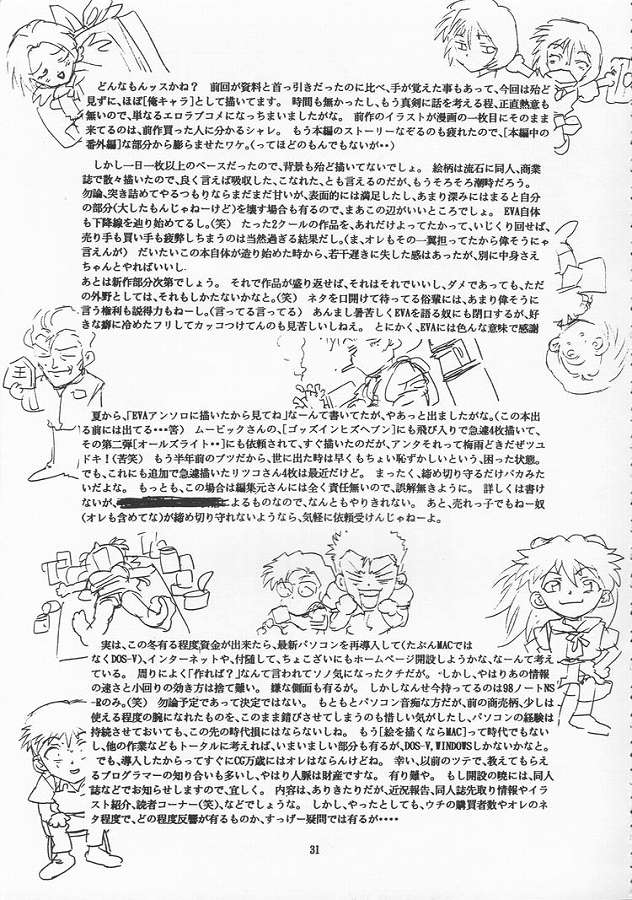 どんなもんッスかね?　前回が資料と首っ引きだったのに比べ、手が覚えた事もあって、今回は殆ど
見ずに、ほぼ[俺キャラ]として描いてます。　時間も無かったし、もう真剣に話を考える程、正直熱意も
無いので、単なるエロラブコメになっちまいましたがな。　前作のイラストが漫画の一枚目にそのまま
来てるのは、前作買った人に分かるシャレ。　もう本編のストーリーなぞるのも疲れたので、[本編中の
番外編]な部分から膨らませたワケ。(ってほどのもんでもないが・・)
しかし一日一枚以上のペースだったので、背景も殆ど描いてないでしょ。　絵柄は流石に同人、商業
誌で散々描いたので、良く言えば吸収した、こなれた、とも言えるのだが、もうそろそろ潮時だろう。
勿論、突き詰めてやるつもりならまだまだ甘いが、表面的には満足したし、あまり深みにはまると自分
の部分(大したもんじゃねーけど)を壊す場合も有るので、まあこの辺がいいところでしょ。　EVA自体
も下降線を辿り始めてるし。(笑)　たった2クールの作品を、あれだけよってたかって、いじくり回せば、
売り手も買い手も疲弊しちまうのは当然過ぎる結果だし。(ま、オレもその一翼担ってたから偉そうにゃ
言えんが)　だいたいこの本自体が造り始めた時から、若干遅きに失した感はあったが、別に中身さえ
ちゃんとやればいいし.
あとは新作部分次第でしょう。　それで作品が盛り返せば、それはそれでいいし、ダメであっても、ただ
の外野としては、それもしかたないかなと。(笑)　ネタを口開けて待ってる俗輩には、あまり偉そうに
言う権利も説得力もねーし。(言ってる言ってる)　あんまし暑苦しくEVAを語る奴にも閉口するが、好
きな癖に冷めたフリしてカッコつけてんのも見苦しいしねえ。　とにかく、EVAには色んな意味で感謝
王
夏から、「EVAアンソロに描いたから見てね」なーんて書いてたが、やあっと出ましたがな。(この本出
る前には出てる・・・答)　ムービックさんの、[ゴッズインヒズヘブン]にも飛び入りで急遽4枚描いて、
その第二弾[オールズライト・・]にも依頼されて、すぐ描いたのだが、アンタそれって梅雨どきだぜツユ
ドキ!(苦笑)　もう半年前のブツだから、世に出た時は早くもちょい恥ずかしいという、困った状態。
でも、これにも追加で急遽描いたリツコさん4枚は最近だけど。　まったく、締め切り守るだけバカみた
いだよな。　もっとも、この場合は編集元さんには全く責任無いので、誤解無きように。　詳しくは書け
ないが、によるものなので、なんともやりきれない。　あと、売れっ子でもねー奴
(オレも含めてな)が締め切り守れないようなら、気軽に依頼受けんじゃねーよ。
実は、この冬有る程度資金が出来たら、最新パソコンを再導入して(たぶんMACでは
なくDOS-V)、インターネットや、付随して、ちょこざいにもホームページ開設しようかな、なーんて考え
ている。　周りによく「作れば?」なんて言われてソノ気になったクチだが。-しかし、やはりあの情報
の速さと小回りの効き方は捨て難い。　嫌な側面も有るが。　しかしなんせ今持ってるのは98ノートNS-
Rのみ。(笑)　勿論予定であって決定ではない。　もともとパソコン音痴な方だが、前の商売柄、少しは
使える程度の腕になれたものを、このまま錆びさせてしまうのも惜しい気がしたし、パソコンの経験は
持続させておいても、この先の時代損にはならないしね。　もう[絵を描くならMAC]って時代でもない
し、他の作業などもトータルに考えれば、いまいましい部分も有るが、DOS-V,WINDOWSしかないかなと。
でも、導入したからってすぐにCG万歳にはオレはならんけどね。　幸い、以前のツテで、教えてもらえ
るプログラマーの知り合いも多いし、やはり人脈は財産ですな。　有り難や。　もし開設の暁には、同人
誌などでお知らせしますので、宜しく。　内容は、ありきたりだが、近況報告、同人誌先取り情報やイラ
スト紹介、読者コーナー(笑)、などでしょうな。　しかし、やったとしても、ウチの購買者数やオレのネ
タ程度で、どの程度反響が有るものか、すっげー疑問では有るが・・・・
31